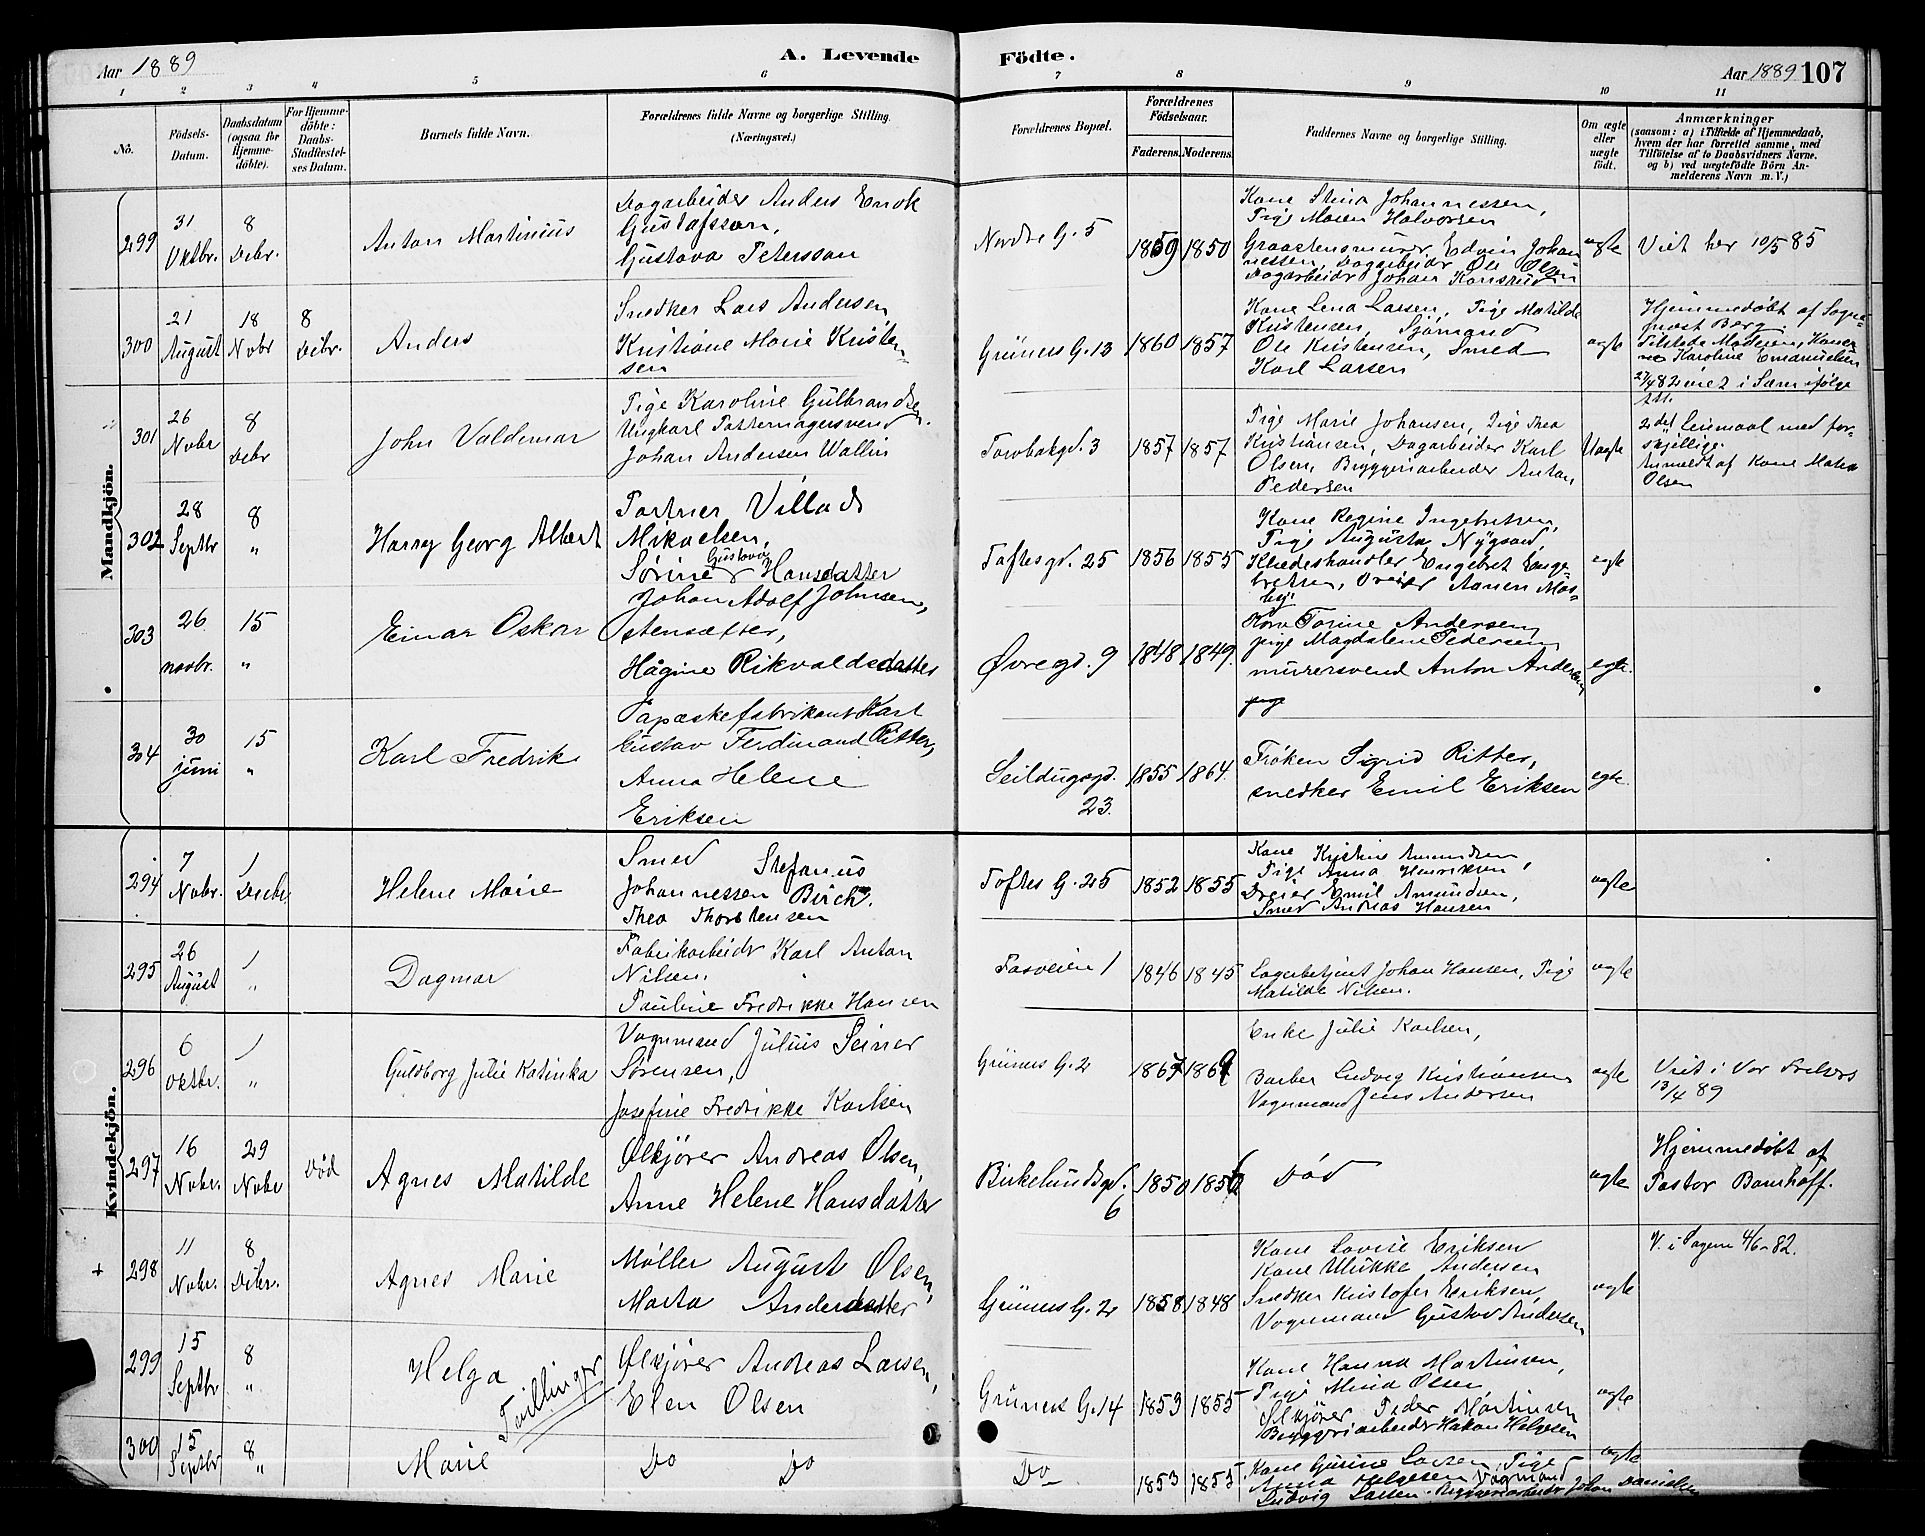 Aar 1889
A. Levende Födte.
Aar 1889 107
1 2 3 4 5 6 7 8 9 10 11
No.
Födsels-Datum.
Daabsdatum (ogsaa for Hjemme-döbte).
For Hjemme-döbte: Daabs-Stadfæstel-ses Datum.
Barnets fulde Navn.
Forældrenes fulde Navne og borgerlige Stilling.
(Næringsvei.)
Forældrenes Bopæl.
Forældrenes Födselsaar.
Faderens. Moderens.
Faddernes Navne og borgerlige Stilling.
Om ægte eller uægte födt.
Anmærkninger
(saasom: a) i Tilfælde af Hjemmedaab,
hvem der har forrettet samme, med
Tilföielse af to Daabsvidners Navne.
og b) ved uægtefödte Börn An-
melderens Navn m. V.)
Mandkjön.
299
31 Oktbr.
8 Debr.
Anton Martinius
Dagarbeider Anders Enok
Gustafsson,
Gustava Petersson
Nordre G. 5
1859 1850
Kone Stina Johannessen,
Pige Maren Halvorsen
Graastensmurer Edvin Johan-
nessen, Dagarbeidr Ole Olsen
Dagarbeidr Johan
ægte
Viet her 10/5 85
300
21 August
18 Nobr
8 Debr.
Anders
Snedker Lars Andersen
Kristiane Marie Kristen-
sen
Grüners G. 13
1860 1857
Kone Lena Larsen, Pige Matilde
Kristensen, Sjömand
Ole Kristensen, Smed
Karl Larsen
ægte
Hjemmedøbt af Sogne-
prest Berg.
Tilstede Moderen, Kone
Karoline Emanuelsen
27/4 82 viet i Sarm ifølge
Att.
301
26 Nobr
8 Debr
John Valdemar
Pige Karoline Gulbrandsen.
Ungkarl Pottemagersvend
Johan Andersen Wallin
Torvbakgd. 3
1857 1857
Pige Marie Johansen, Pige Thea
Kristiansen, Dagarbeider Karl
Olsen, Bryggeriarbeider Anton
Pedersen
Uægte
2det Leiermaal med for-
skjellige.
Anmeldt af Kone Maren
Olsen
302
28 Septbr
8 "
Harry Georg Albert
Portner Villads
Mikaelsen,
Sørine Gustava Hansdatter
Toftesgd. 25
1856 1855
Kone Regine Ingebretsen,
Pige Augusta Nygaard
Klædeshandler Engebret Enge-
bretsen, Dreier Aanen Mos-
by.
ægte
303
26 novbr.
15 "
Einar Oskar
Johan Adolf Johnsen,
stensætter,
Hågine Rikvaldsdatter
Øvregd. 9
1848 1849.
Kone Torine Andersen,
pige Magdalene Pedersen
murersvend Anton Andersen
pige
egte.
304
30 juni
15 "
Karl Fredrik
Papæskefabrikant Karl
Gustav Ferdinand Ritter,
Anna Helene
Eriksen
Seildugsgd.
23.
1855 1864.
Frøken Sigrid Ritter,
snedker Emil Eriksen
egte.
Kvindekjön.
294
7 Nobr.
1 Decbr
Helene Marie
Smed Stefanus
Johannessen Birch.
Thea Thorstensen
Toftes G. 25
1852 1855
Kone Kristine Amundsen,
Pige Anna Henriksen,
Dreier Emil Amundsen,
Smed Andreas Hansen
ægte
295
26 August
1 "
Dagmar
Fabrikarbeidr Karl Anton
Nilsen.
Pauline Fredrikke Hansen
Fosveien 1
1846 1845
Lagerbetjent Johan Hansen, Pige
Matilde Nilsen.
ægte
296
6 Oktbr.
1 "
Guldborg Julie Katinka
Vognmand Julius Seiner
Sørensen,
Josefine Fredrikke Karlsen
Grüners G. 2
1867 1869
Enke Julie Karlsen,
Barber Ludvig Kristiansen
Vognmand Jens Andersen
ægte
Viet i Vor Frelsers
13/4 89
297
16 Nobr.
29 Nobr
Død
Agnes Matilde
Ølkjører Andreas Olsen,
Anne Helene Hansdatter
Birkelundsgd.
6
1850 1856
Død
ægte
Hjemmedøbt af
Pastor Bomhoff.
+
298
11 Nobr.
8 Debr.
Agnes Marie
Møller August Olsen,
Marta Andersdatter
Grüners G. 2
1858 1848
Kone Lovise Eriksen
Kone Ulrikke Andersen
Snedker Kristofer Eriksen,
Vognmand Gustav Andersen
ægte
V. i Vagen 4/6-82.
299
15 Septbr
8 "
Helga
Tvillinger
Ølkjører Andreas Larsen,
Elen Olsen
Grüners G. 14
1853 1855
Kone Hanna Martinsen,
Pige Mina Olsen
Ølkjører Peder Martinsen
Bryggeriarbeider Hakon Helgesen
ægte
300
15 Septbr
8 "
Marie
Do Do
Do
1853 1855
Kone Gurine Larsen, Pige
Anna Helgesen, Vognmand
Ludvig Larsen. Bryggeriarbeidr Johan Danielsen
ægte